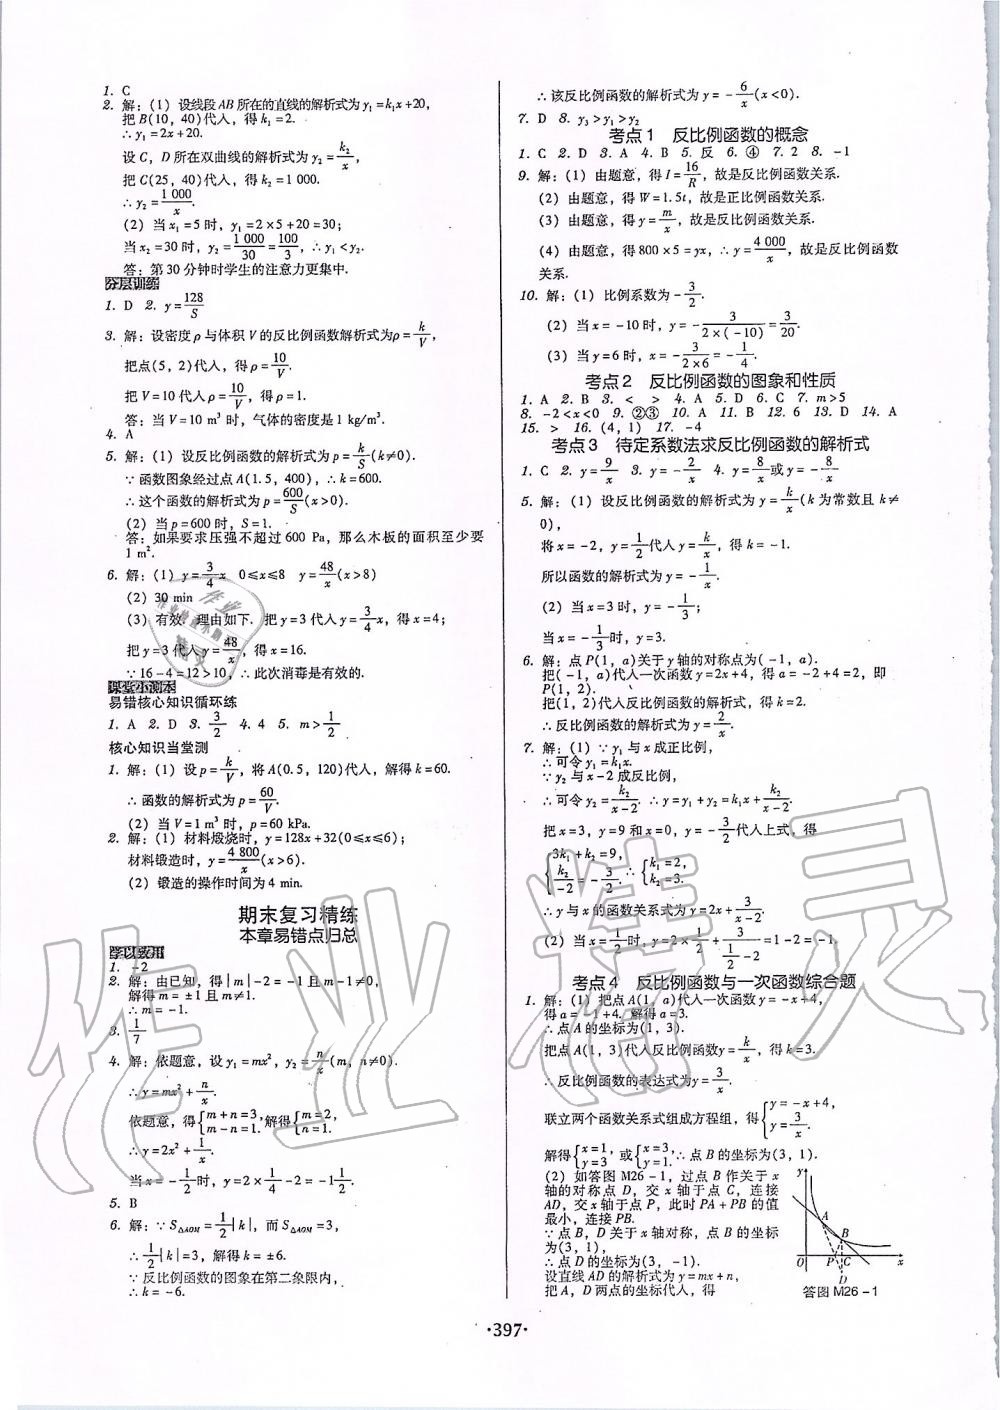 1. C
2. 解：(1) 设线段 AB 所在的直线的解析式为 y₁=k₁x+20,
把 B(10, 40)代入，得 k₁=2.
∴y₁=2x+20.
设 C, D 所在双曲线的解析式为 y₂=k₂/x,
把 C(25, 40)代入，得 k₂=1 000.
∴y₂=1 000/x.
(2) 当 x₁=5 时，y₁=2×5+20=30;
当 x₂=30 时，y₂=1 000/30=100/3, ∴y₁<y₂.
答：第 30 分钟时学生的注意力更集中.
分层训练
1. D 2. y=128/S
3. 解：设密度 ρ 与体积 V 的反比例函数解析式为 ρ=k/V,
把点(5, 2)代入，得 ρ=10/V.
把 V=10 代入 ρ=10/V, 得 ρ=1.
答：当 V=10 m³ 时，气体的密度是 1 kg/m³.
4. A
5. 解：(1) 设反比例函数的解析式为 p=k/S(k≠0).
∵函数图象经过点 A(1.5, 400), ∴k=600.
∴这个函数的解析式为 p=600/S(x>0).
(2) 当 p=600 时，S=1.
答：如果要求压强不超过 600 Pa, 那么木板的面积至少要
1 m².
6. 解：(1) y=3/4 x 0≤x≤8 y=48/x(x>8)
(2) 30 min
(3) 有效. 理由如下. 把 y=3 代入 y=3/4 x, 得 x=4;
把 y=3 代入 y=48/x, 得 x=16.
∵16-4=12>10, ∴此次消毒是有效的.
课堂小测本
易错核心知识循环练
1. A 2. D 3. 3/2 4. 4 5. m>1/2
核心知识当堂测
1. 解：(1) 设 p=k/V, 将 A(0.5, 120)代入，解得 k=60.
∴函数的解析式为 p=60/V.
(2) 当 V=1 m³ 时，p=60 kPa.
2. 解：(1) 材料煅烧时，y=128x+32(0≤x≤6);
材料锻造时，y=4 800/x(x>6).
(2) 锻造的操作时间为 4 min.
期末复习精练
本章易错点归总
学以致用
1. -2
2. 解：由已知，得|m|-2=-1 且 m-1≠0,
解得 m=±1 且 m≠1.
∴m=-1.
3. 1/7
4. 解：依题意，设 y₁=mx², y₂=n/x(m, n≠0).
∴y=mx²+n/x.
依题意，得{m+n=3, m-n=1. 解得{m=2, n=1.
∴y=2x²+1/x.
当 x=-1/2 时，y=2×1/4-2=-1 1/2.
5. B
6. 解：∵S△AOM=1/2|k|, 而 S△AOM=3,
∴1/2|k|=3, 解得 k=±6.
∵反比例函数的图象在第二象限内，
∴k=-6.
∴该反比例函数的解析式为 y=-6/x(x<0).
7. D 8. y₃>y₁>y₂
考点 1 反比例函数的概念
1. C 2. D 3. A 4. B 5. 反 6. ④ 7. 2 8. -1
9. 解：(1) 由题意，得 I=16/R, 故是反比例函数关系.
(2) 由题意，得 W=1.5t, 故是正比例函数关系.
(3) 由题意，得 y=m/x, 故是反比例函数关系.
(4) 由题意，得 800×5=yx, ∴y=4 000/x, 故是反比例函数
关系.
10. 解：(1) 比例系数为 -3/2.
(2) 当 x=-10 时，y=-3/2×(-10)=3/20.
(3) 当 y=6 时，x=-3/2×6=-1/4.
考点 2 反比例函数的图象和性质
1. A 2. B 3. < > 4. A 5. D 6. C 7. m>5
8. -2<x<0 9. ②③ 10. A 11. B 12. 6 13. D 14. A
15. > 16. (4, 1) 17. -4
考点 3 待定系数法求反比例函数的解析式
1. C 2. y=9/x 3. y=-2/x 4. y=8/x 或 y=-8/x
5. 解：(1) 设反比例函数的解析式为 y=k/x(k 为常数且 k≠
0),
将 x=-2, y=1/2 代入 y=k/x, 得 k=-1.
所以函数的解析式为 y=-1/x.
(2) 当 x=3 时，y=-1/3;
当 x=-1/3 时，y=3.
6. 解：点 P(1, a)关于 y 轴的对称点为(-1, a).
把(-1, a)代入一次函数 y=2x+4, 得 a=-2+4=2, 即
P(1, 2).
把(1, 2)代入反比例函数的解析式，得 k=2.
∴反比例函数的解析式为 y=2/x.
7. 解：(1) ∵y₁ 与 x 成正比例，
∴可令 y₁=k₁x.
∵y₂ 与 x-2 成反比例，
∴可令 y₂=k₂/x-2. ∴y=y₁+y₂=k₁x+k₂/x-2.
把 x=3, y=9 和 x=0, y=-3/2 代入上式，得
{3k₁+k₂=9, k₂/-2=-3/2. ∴{k₁=2, k₂=3.
∴y 与 x 的函数关系式为 y=2x+3/x-2.
(2) 当 x=1/2 时，y=2×1/2+3/(1/2-2)=1-2=-1.
考点 4 反比例函数与一次函数综合题
1. 解：(1) 把点 A(1, a)代入一次函数 y=-x+4,
得 a=-1+4. 解得 a=3.
∴点 A 的坐标为(1, 3).
把点 A(1, 3)代入反比例函数 y=k/x, 得 k=3.
∴反比例函数的表达式为 y=3/x.
联立两个函数关系式组成方程组，得{y=-x+4, y=3/x.
解得{x=1, y=3 或{x=3, y=1. ∴点 B 的坐标为(3, 1).
(2) 如答图 M26-1, 过点 B 作关于 x
轴的对称点 D, 交 x 轴于点 C, 连接
AD, 交 x 轴于点 P, 此时 PA+PB 的值
最小，连接 PB.
∵点 B, D 关于 x 轴对称，点 B 的坐标
为(3, 1),
∴点 D 的坐标为(3, -1).
设直线 AD 的解析式为 y=mx+n,
把 A, D 两点的坐标代入，得
y
A
B
O P C x
D
答图 M26-1
·397·
作业精灵